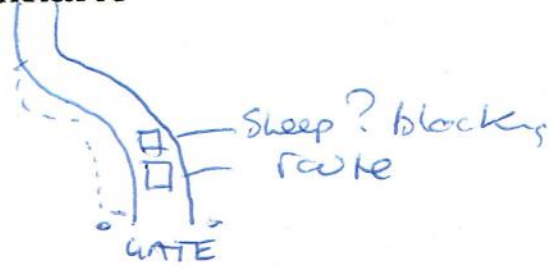 Sheep? blocking
route
GATE